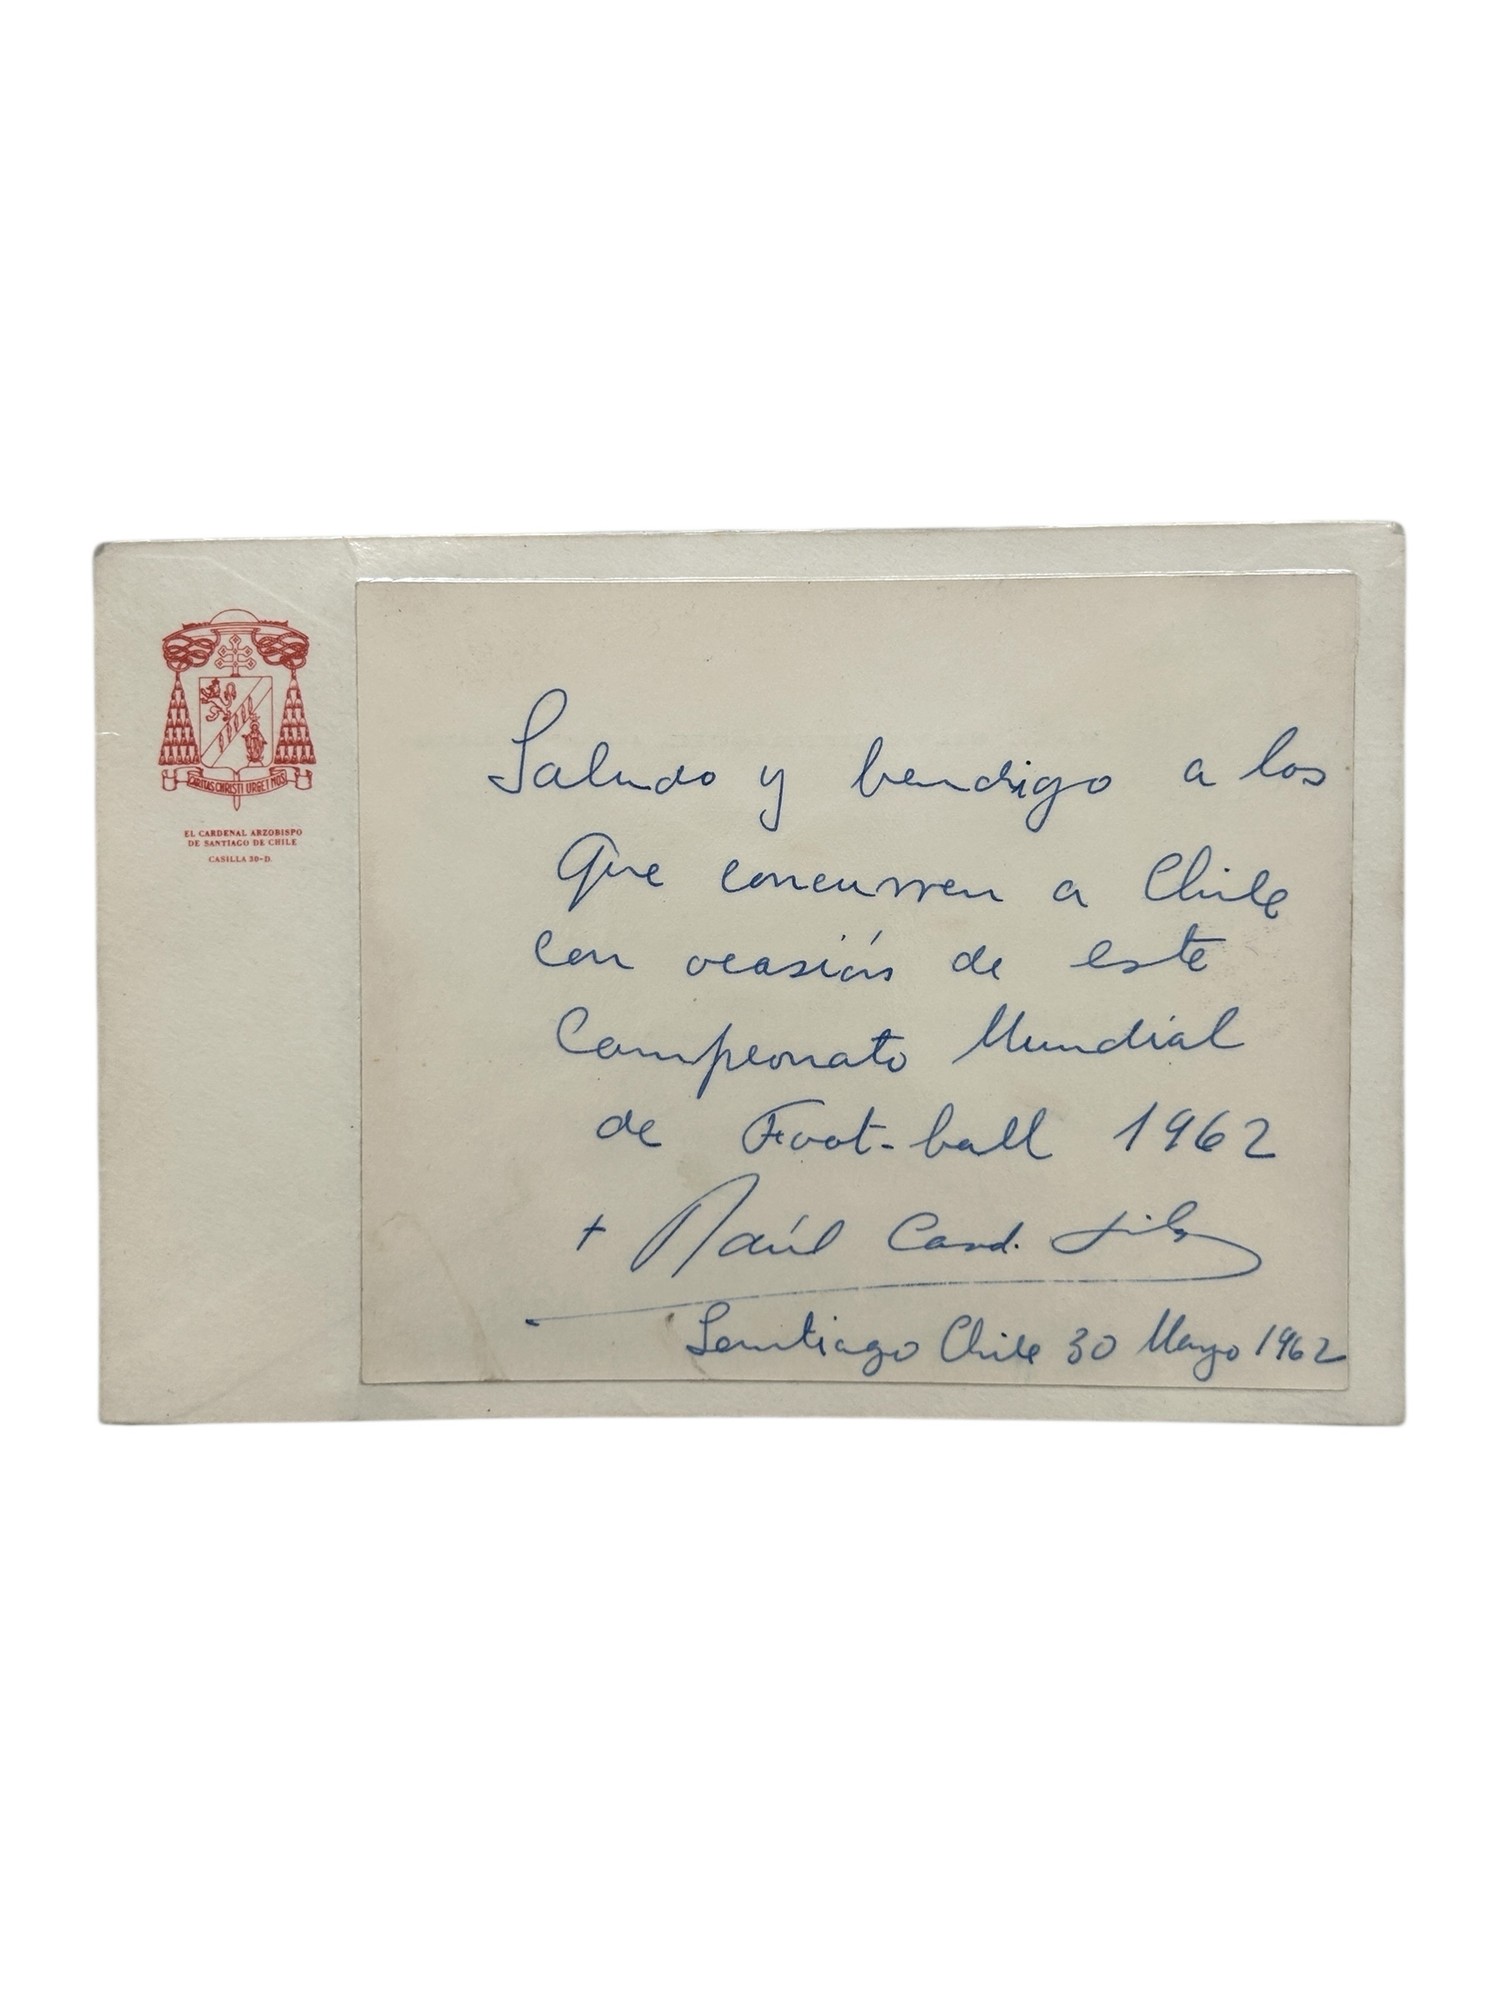 CARITAS CHRISTI URGET NOS
EL CARDENAL ARZOBISPO
DE SANTIAGO DE CHILE
CASILLA 30-D.
Saludo y bendigo a los
que concurren a Chile
con ocasión de este
Campeonato Mundial
de Foot-ball 1962
+ Raúl Card. Silva
Santiago Chile 30 Mayo 1962